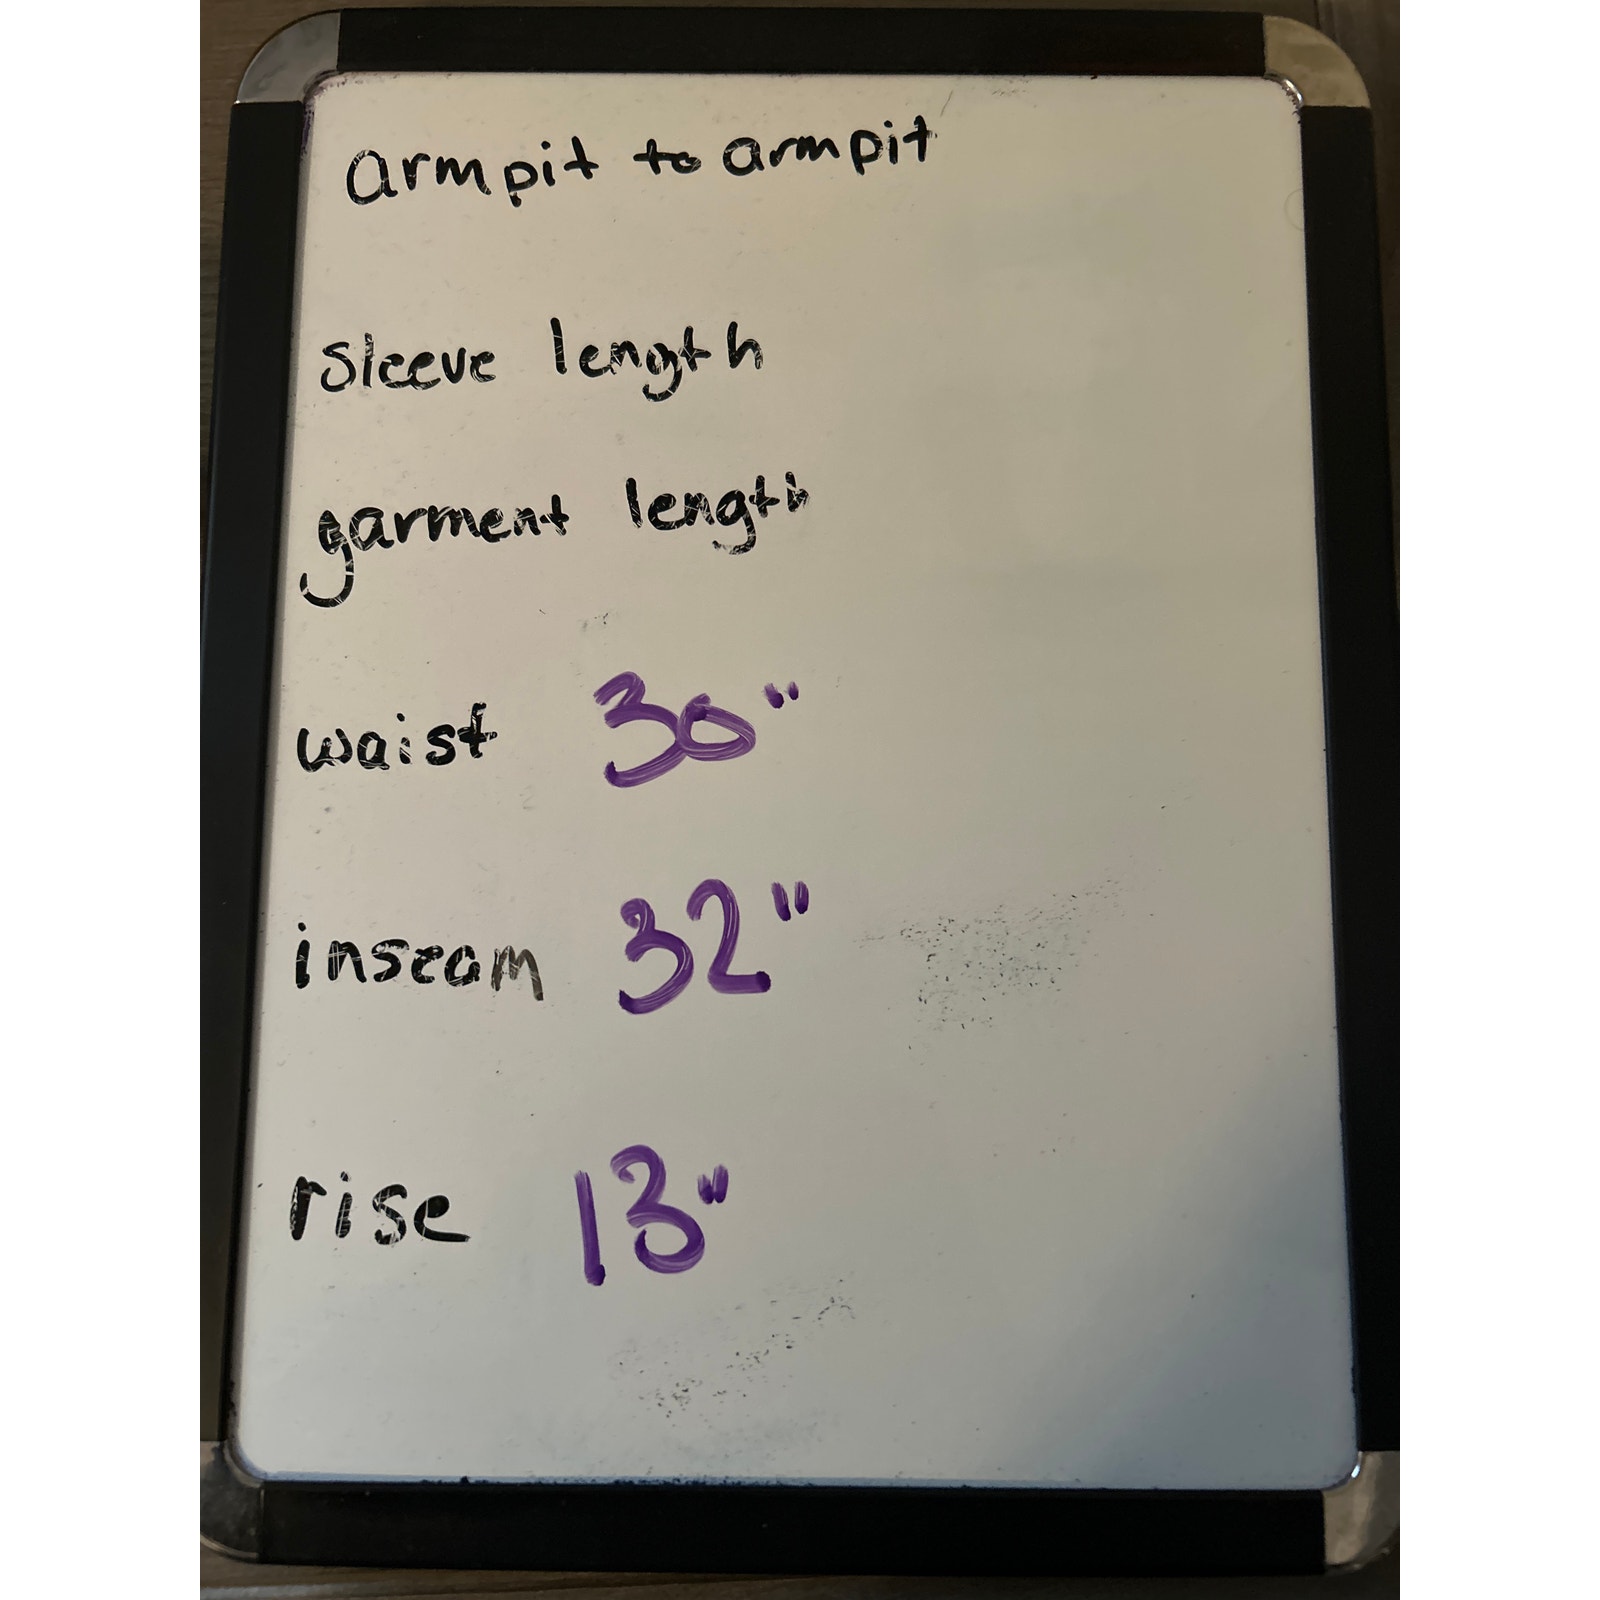 armpit to armpit
sleeve length
garment length
waist 30"
inseam 32"
rise 13"